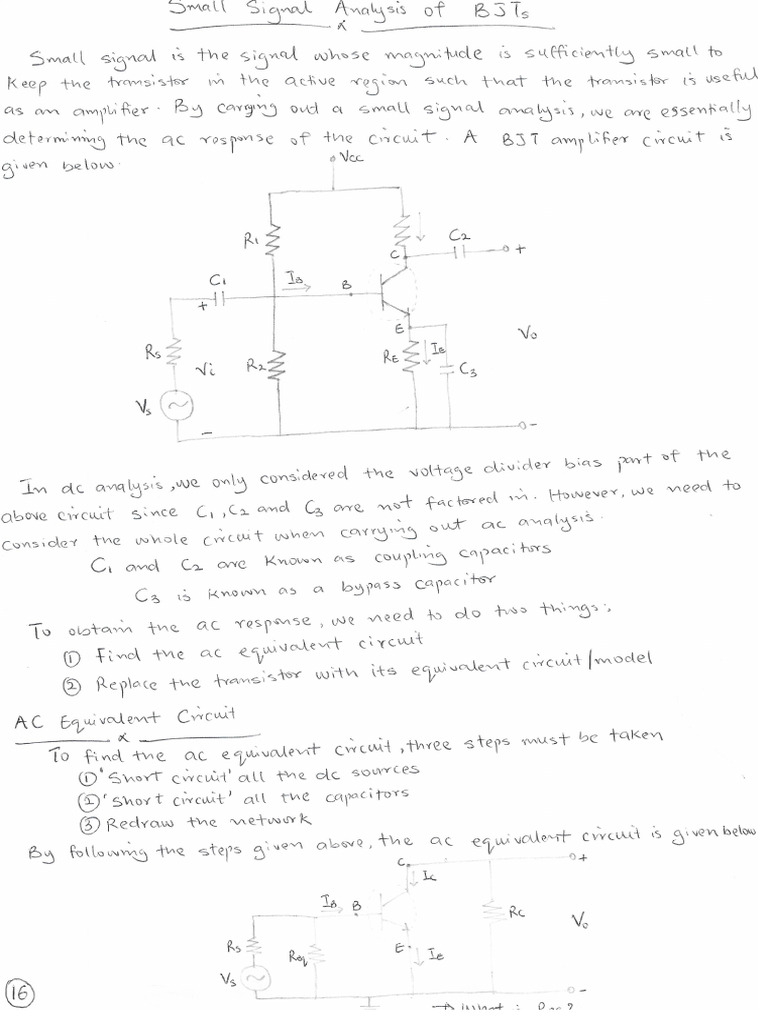 Small Signal Analysis of BJTs
Small signal is the signal whose magnitude is sufficiently small to
keep the transistor in the active region such that the transistor is useful
as an amplifier. By carrying out a small signal analysis, we are essentially
determining the ac response of the circuit. A BJT amplifier circuit is
given below.
Vcc
R1
C2
C
+
C1
IB
B
+
E
Vo
Rs
Vi
R2
RE
IE
C3
Vs
-
-
In dc analysis, we only considered the voltage divider bias part of the
above circuit since C1, C2 and C3 are not factored in. However, we need to
consider the whole circuit when carrying out ac analysis.
C1 and C2 are known as coupling capacitors
C3 is known as a bypass capacitor
To obtain the ac response, we need to do two things:
① Find the ac equivalent circuit
② Replace the transistor with its equivalent circuit/model
AC Equivalent Circuit
To find the ac equivalent circuit, three steps must be taken
① 'Short circuit' all the dc sources
② 'Short circuit' all the capacitors
③ Redraw the network
By following the steps given above, the ac equivalent circuit is given below
C
+
Ic
IB B
Rc
Vo
Rs
Req
E
IE
Vs
-
16